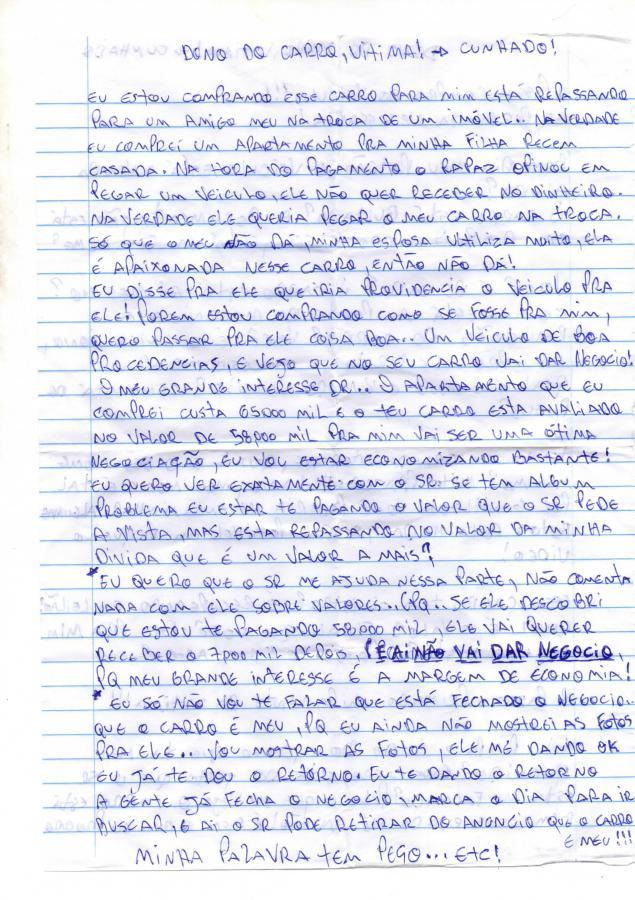 DONO DO CARRO, VITIMA! → CUNHADO!
EU ESTOU COMPRANDO ESSE CARRO PARA MIM ESTÁ REPASSANDO
PARA UM AMIGO MEU NA TROCA DE UM IMÓVEL.. NA VERDADE
EU COMPREI UM APARTAMENTO PRA MINHA FILHA RECEM
CASADA. NA HORA DO PAGAMENTO O RAPAZ OPINOU EM
PEGAR UM VEICULO, ELE NÃO QUER RECEBER NO DINHEIRO.
NA VERDADE ELE QUERIA PEGAR O MEU CARRO NA TROCA.
SÓ QUE O MEU NÃO DÁ, MINHA ESPOSA UTILIZA MUITO, ELA
É APAIXONADA NESSE CARRO, ENTÃO NÃO DÁ!
EU DISSE PRA ELE QUE IRIA PROVIDENCIA O VEICULO PRA
ELE! POREM ESTOU COMPRANDO COMO SE FOSSE PRA MIM,
QUERO PASSAR PRA ELE COISA BOA.. UM VEICULO DE BOA
PROCEDENCIAS, E VEJO QUE NO SEU CARRO VAI DAR NEGOCIO!
O MEU GRANDE INTERESSE DR... O APARTAMENTO QUE EU
COMPREI CUSTA 65000 MIL E O TEU CARRO ESTA AVALIADO
NO VALOR DE 58000 MIL PRA MIM VAI SER UMA ÓTIMA
NEGOCIAÇÃO, EU VOU ESTAR ECONOMIZANDO BASTANTE!
EU QUERO VER EXATAMENTE COM O SR. SE TEM ALGUM
PROBLEMA EU ESTAR TE PAGANDO O VALOR QUE O SR PEDE
A VISTA, MAS ESTA REPASSANDO NO VALOR DA MINHA
DIVIDA QUE É UM VALOR A MAIS?
* EU QUERO QUE O SR ME AJUDA NESSA PARTE, NÃO COMENTA
NADA COM ELE SOBRE VALORES.. (PQ.. SE ELE DESCOBRI
QUE ESTOU TE PAGANDO 58000 MIL, ELE VAI QUERER
RECEBER O 7000 MIL DEPOIS, E AI NÃO VAI DAR NEGOCIO,
PQ MEU GRANDE INTERESSE É A MARGEM DE ECONOMIA!
* EU SÓ NÃO VOU TE FALAR QUE ESTÁ FECHADO O NEGOCIO..
QUE O CARRO É MEU, PQ EU AINDA NÃO MOSTREI AS FOTOS
PRA ELE.. VOU MOSTRAR AS FOTOS, ELE ME DANDO OK
EU JÁ TE DOU O RETORNO. EU TE DANDO O RETORNO
A GENTE JÁ FECHA O NEGOCIO, MARCA O DIA PARA IR
BUSCAR, E AI O SR PODE RETIRAR DO ANÚNCIO QUE O CARRO
É MEU!!!
MINHA PALAVRA TEM PESO... ETC!